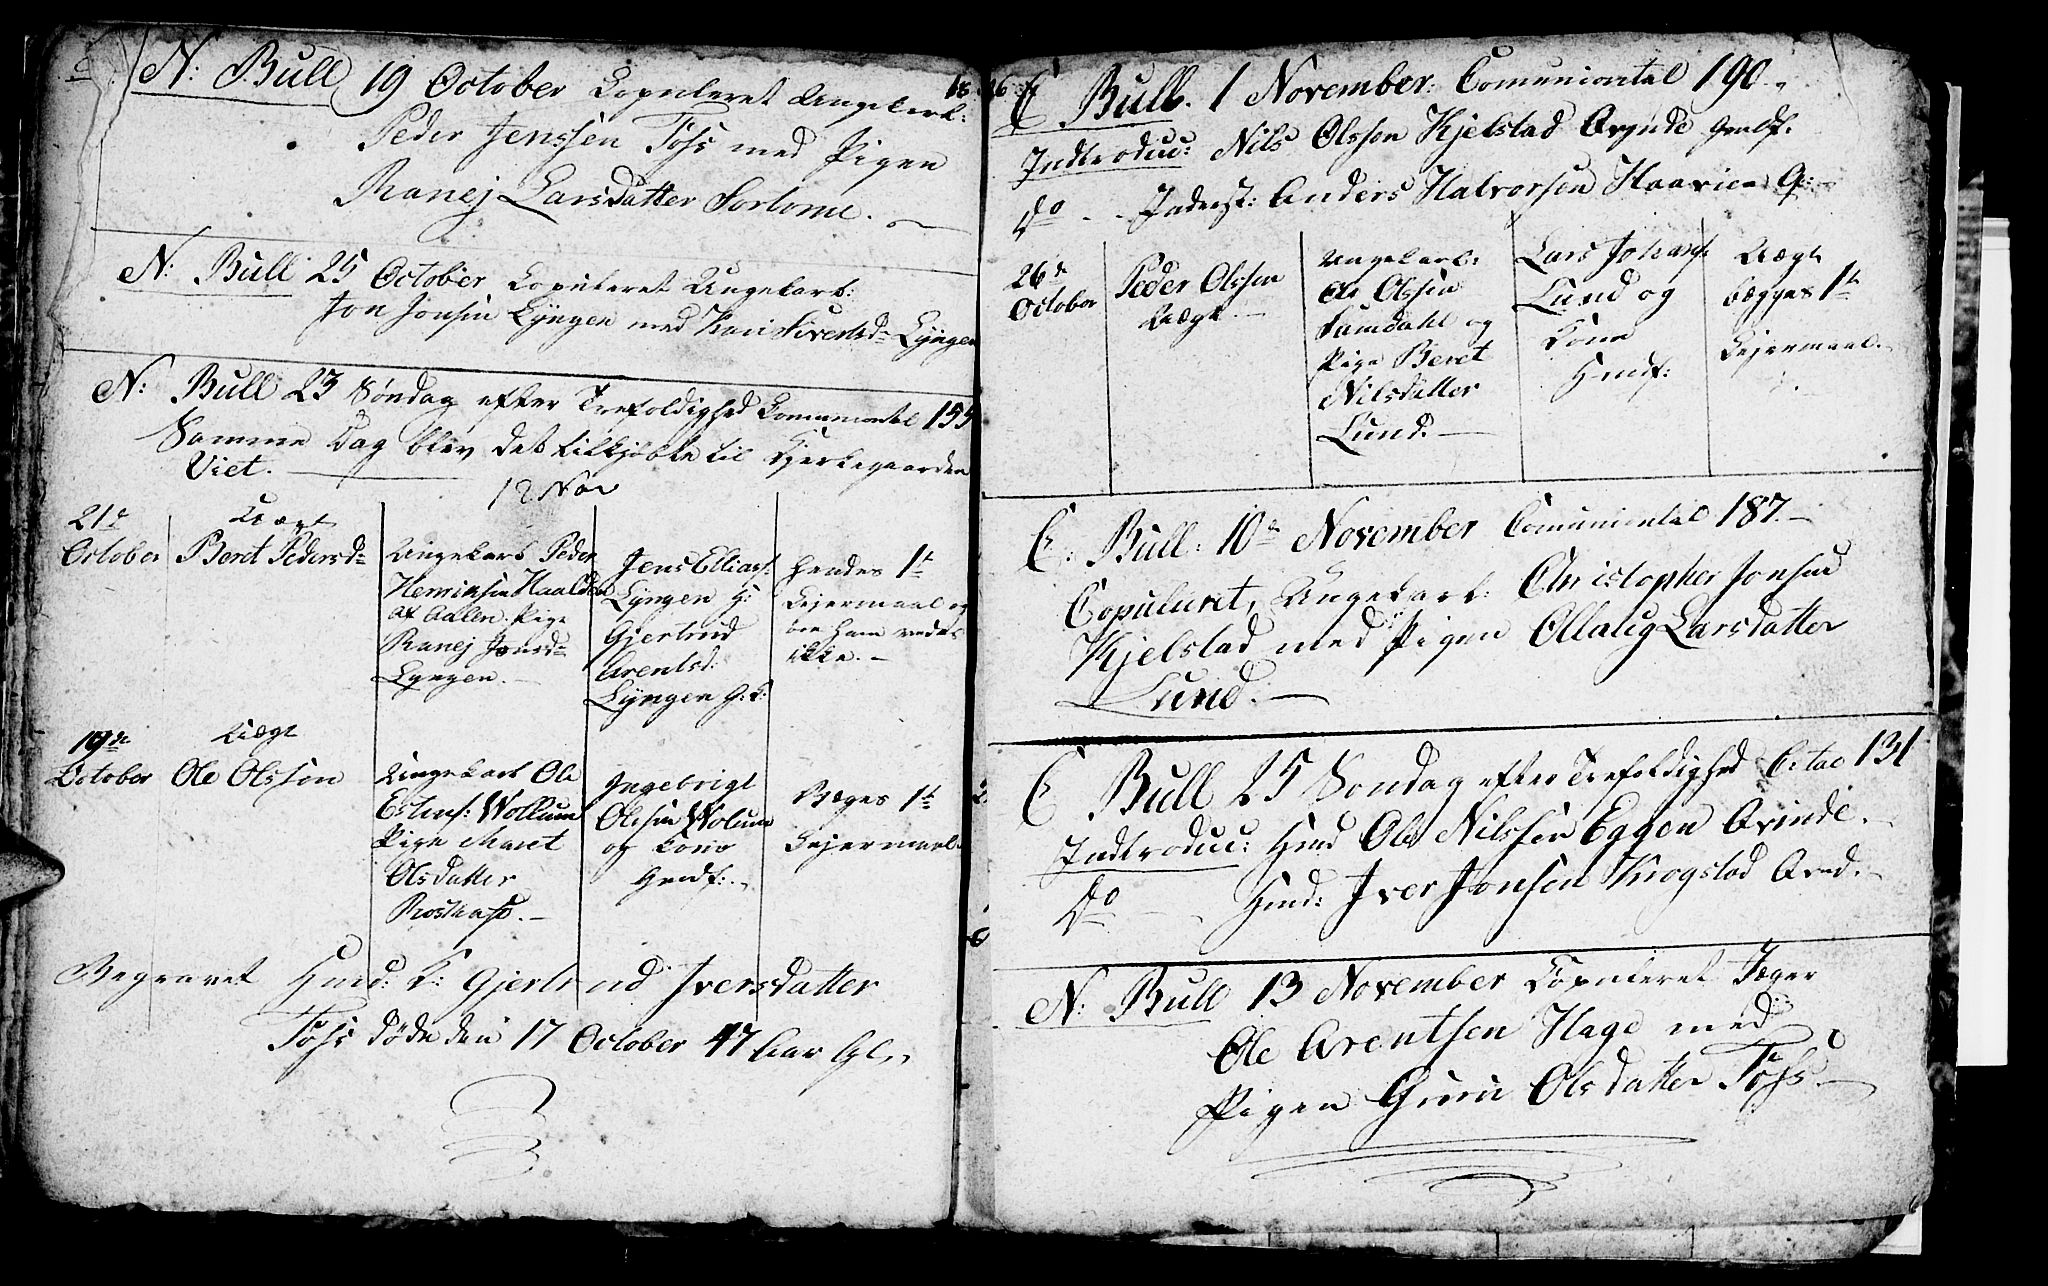 N: Bull 19 October Copuleret Ungekarl:
Peder Jenssen Tøss med Pigen
Ranej Larsdatter Sorlome.
N: Bull 25 October Copuleret Ungekarl:
Jon Jonsen Lÿngen med Kari Siversd: Lÿngen
N: Bull 23 Søndag efter Trefoldighed Comuniontal 155
Samme Dag blev det tilkjøbte til Kjerkegaarden
Viet.
12 Nov
21de October
Uægt
Beret Pedersd:
Ungekarl Peder
af Aalen. Pige
Ranej Jonsd:
Lyngen.
Jens Elliass:
Lÿngen G:
Gjertrud
Arentsd:
Lÿngen G: K:
Hendes 1te
Lejermaal og
om ham vedes
ikke.
19de October
Uægt
Ole Olsson
Ungekarl Ole
Estens: Wollum
Pige Maret
Olsdatter
Ingebrigt
Olesen Wolum
og Kone
Hmdf:
Bæges 1te
Lejermaal.
Begravet Hmd: K: Gjertrud Iversdatter
Tøss døde den 17 October 47 Aar Gl.
18 26
E Bull. 1 November: Comuniontal 190.
Indtroduc: Nils Olsson Kjelstad Qvinde Hmdf.
do Inderst: Anders Halvorsen Haavien Q:
26de October
Peder Olsson
Uægt.
Ungekarl:
Ole Olsson
Samdahl og
Pige Beret
Nilsdatter
Lund.
Lars Johans:
Lund og
Kone
Hmdf:
Uægt
begges 1te
Lejermaal.
E: Bull: 10de November Comuniontal 187.
Copuleret, Ungekarl: Christopher Jonsen
Kjelstad med Pigen Ollaug Larsdatter
Lund.
E Bull 25 Søndag efter Trefoldighed 131
Indtroduc: Hmd Ole Nilssen Eggen Qvinde.
do Hmd: Iver Jonsen Krogstad Qvnd.
N: Bull 13 November Copuleret Jæger
Ole Arentsen Hage med
Pigen Guru Olsdatter Tøss.